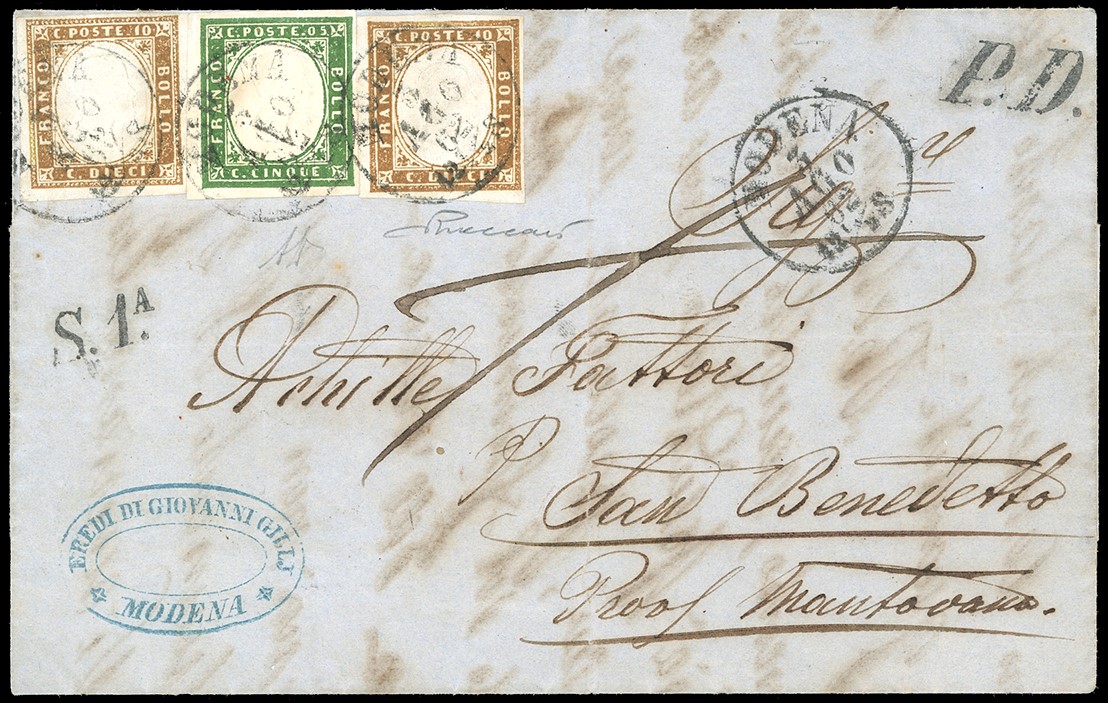 C. POSTE. 10
FRANCO
BOLLO
C. DIECI
C. POSTE. 05
FRANCO
BOLLO
C. CINQUE
C. POSTE. 10
FRANCO
BOLLO
C. DIECI
P.D.
MODENA
AGO
62
S. 1.A
Achille Fattori
P.
San Benedetto
Prov. Mantovana.
EREDI DI GIOVANNI GILLJ
MODENA